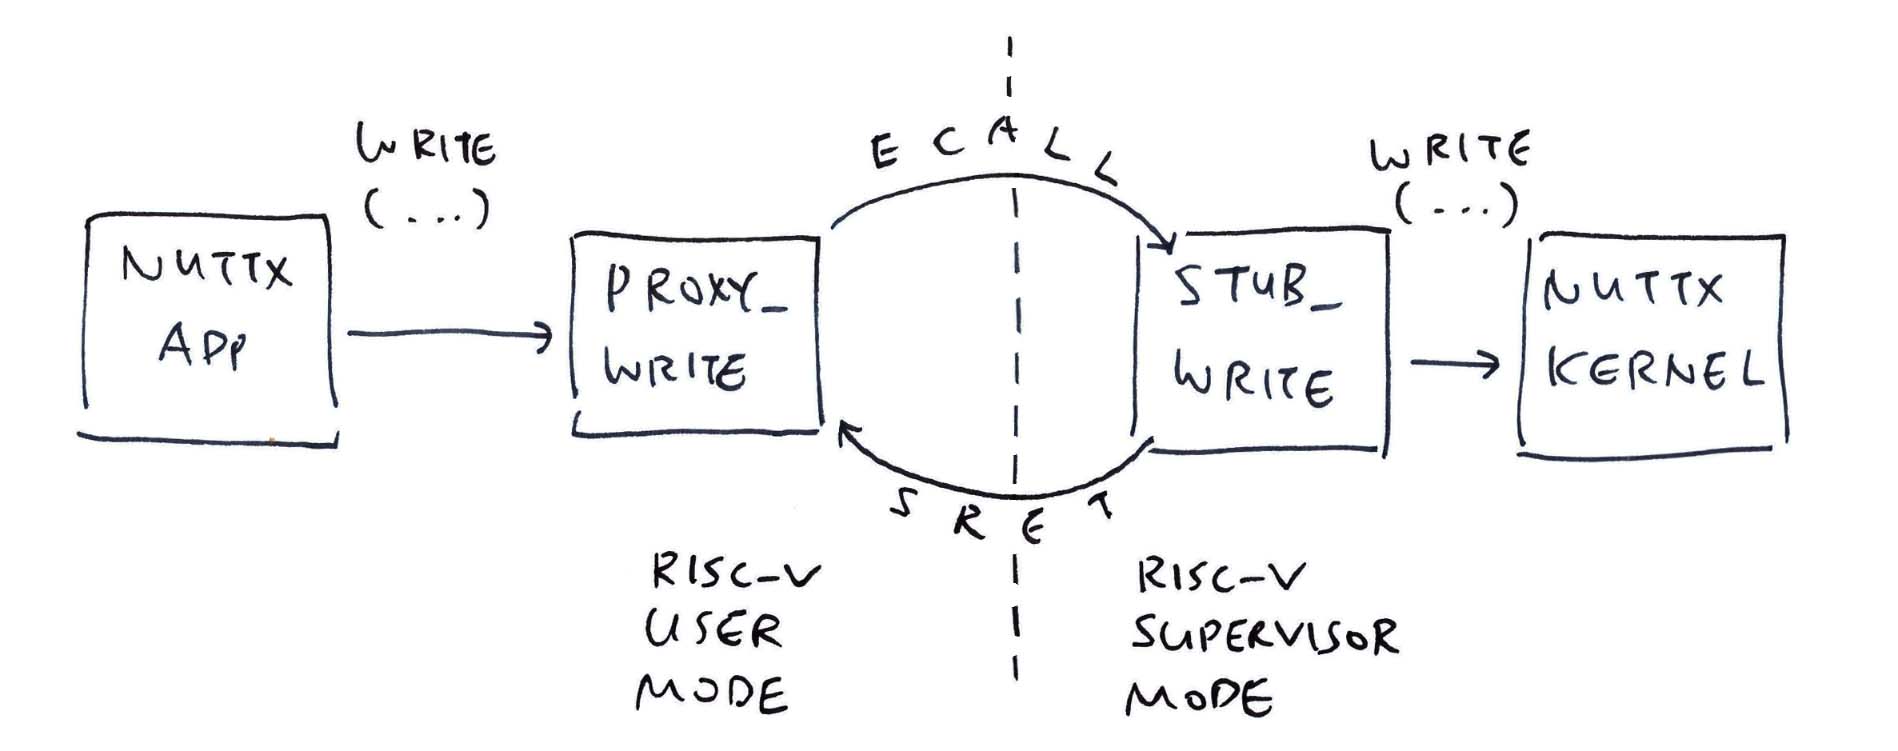 WRITE
(...)
NUTTX
APP
PROXY_
WRITE
ECALL
SRET
STUB_
WRITE
WRITE
(...)
NUTTX
KERNEL
RISC-V
USER
MODE
RISC-V
SUPERVISOR
MODE